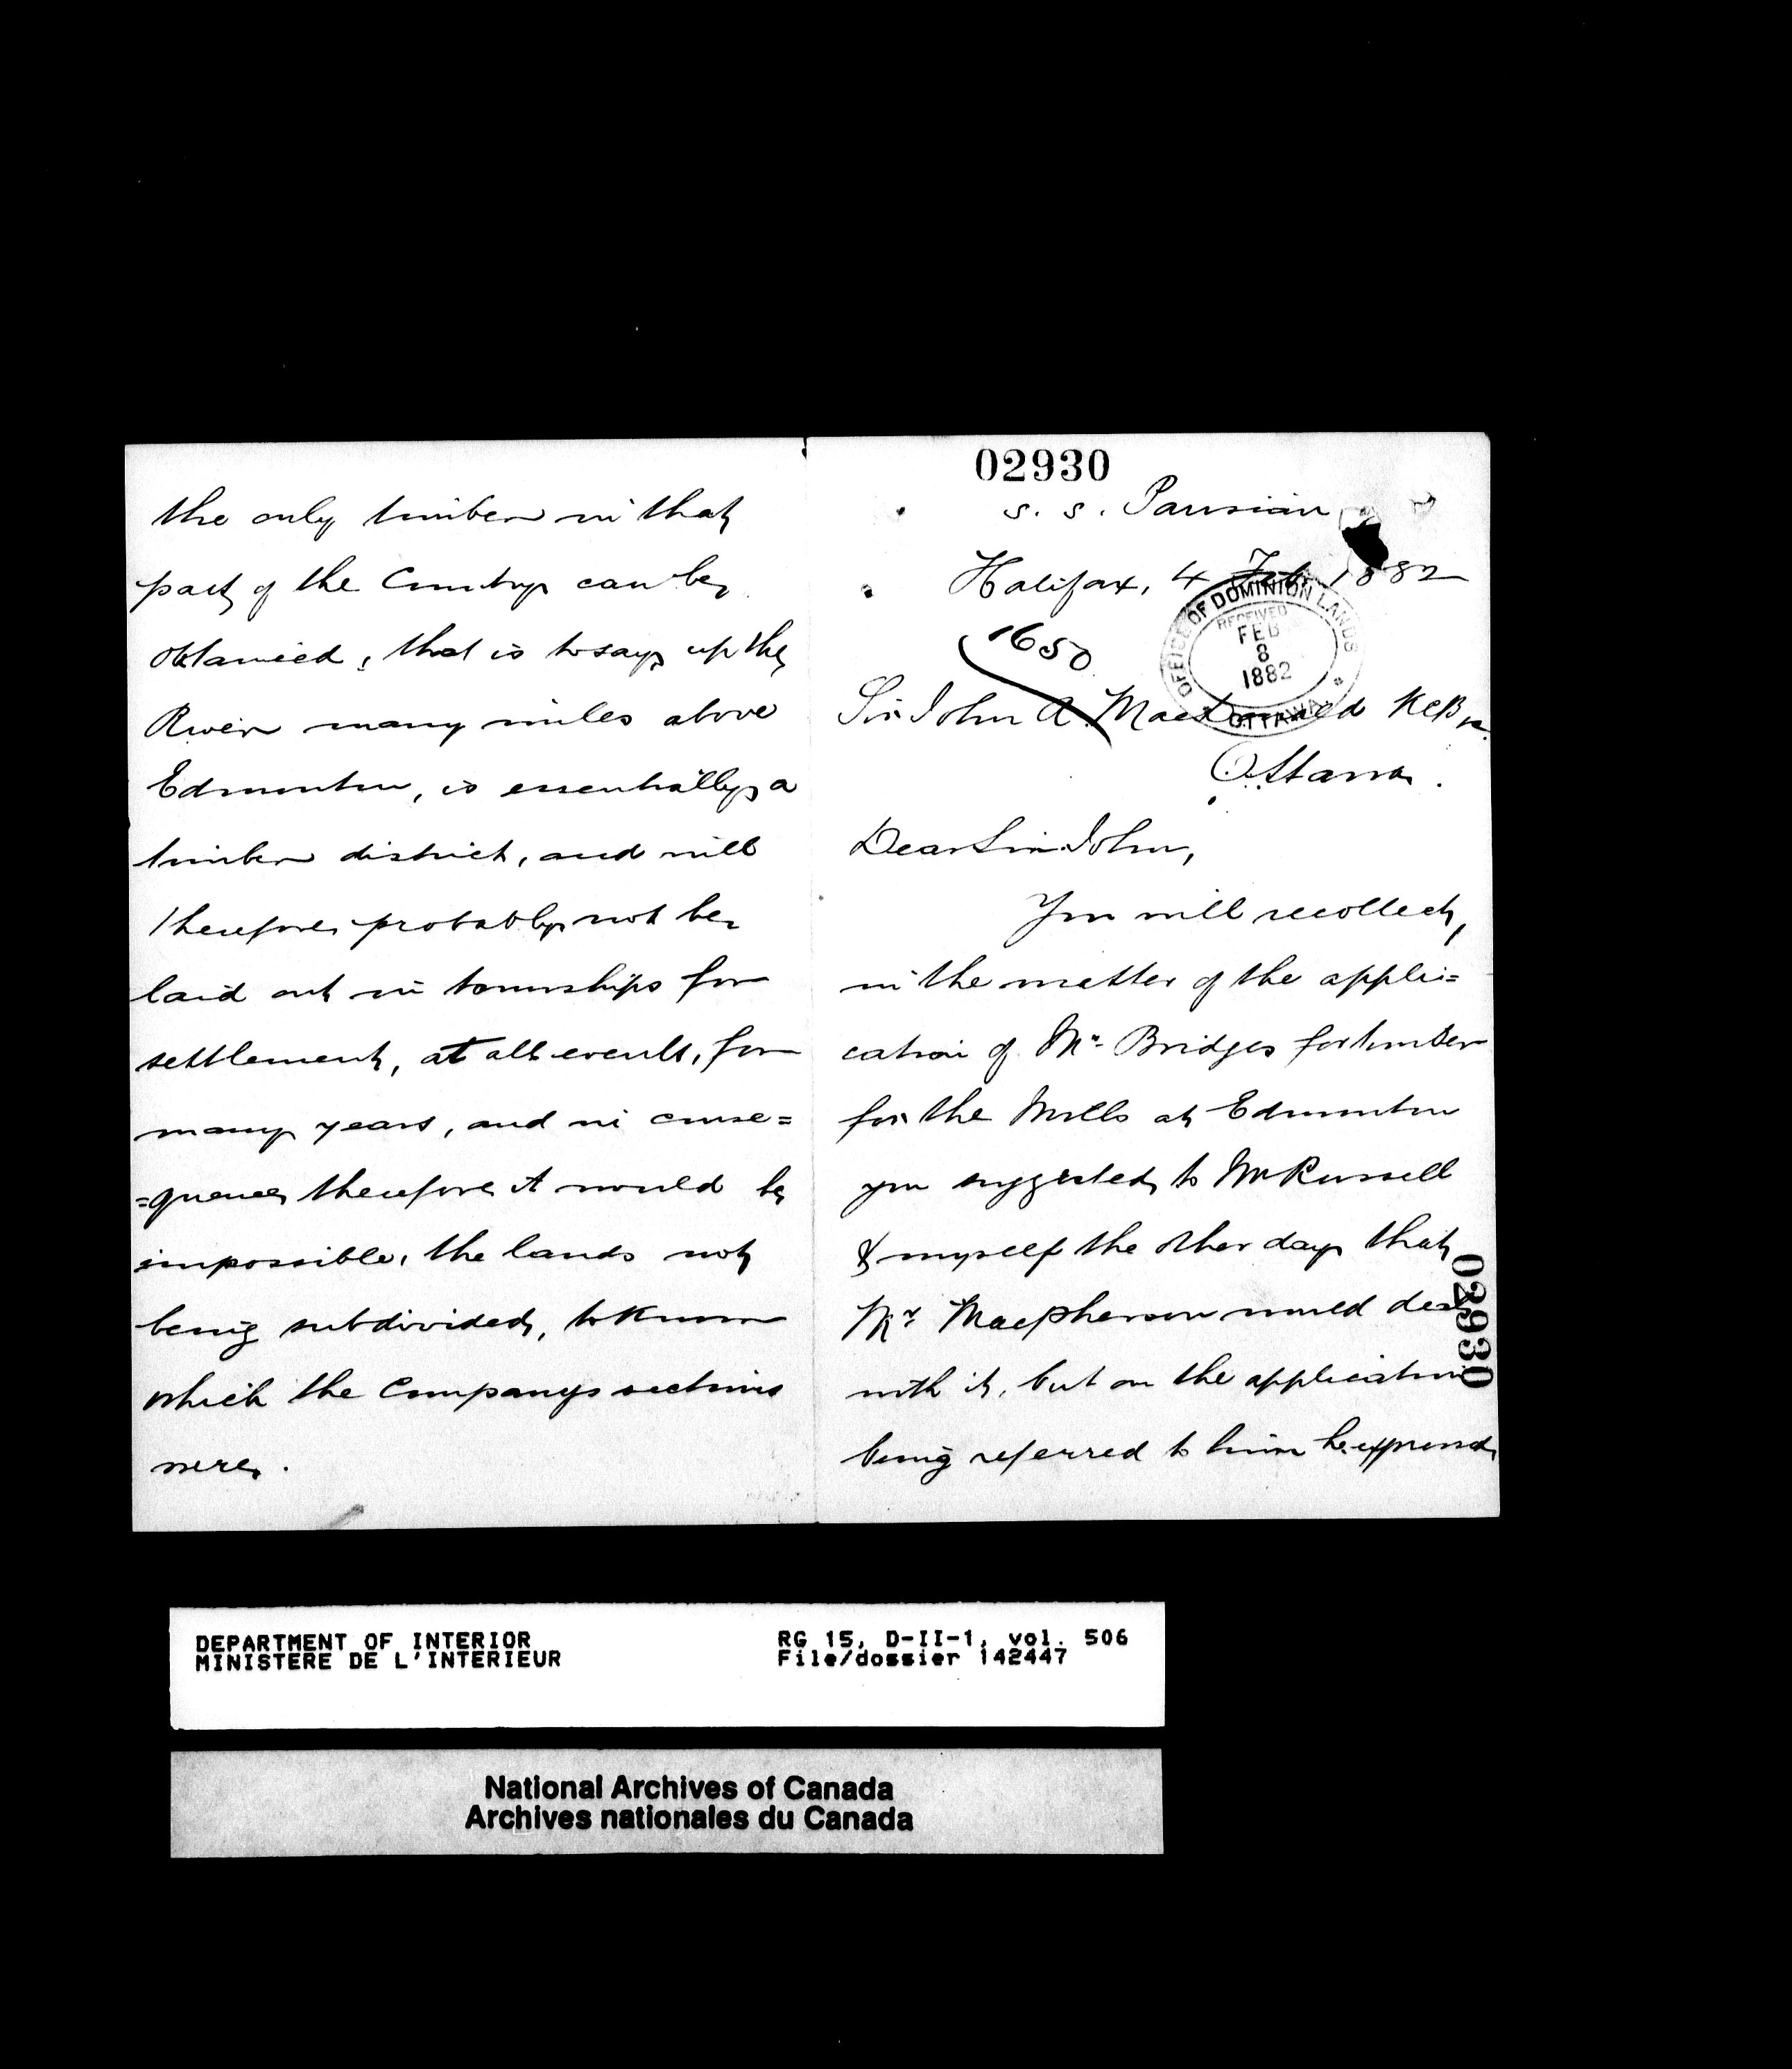 the only timber in that
part of the Country can be
obtained, that is to say, up the
River many miles above
Edmonton, is essentially a
timber district, and will
therefore probably not be
laid out in townships for
settlement, at all events, for
many years, and in conse=
=quence therefore it would be
impossible, the lands not
being subdivided, to know
which the Companys sections
were.
02930
S. S. Parisian
Halifax, 4 Feb. 1882
1650
OFFICE OF DOMINION LANDS
RECEIVED
FEB
8
1882
OTTAWA
Sir John A. Macdonald KCB
Ottawa.
Dear Sir John,
You will recollect,
in the matter of the appli=
cation of Mr. Bridges for timber
for the Mills at Edmonton
you suggested to Mr Russell
& myself the other day that
Mr. Macpherson would deal
with it, but on the application
being referred to him he expressed
02930
DEPARTMENT OF INTERIOR
MINISTERE DE L'INTERIEUR
RG 15, D-II-1, vol. 506
File/dossier 142447
National Archives of Canada
Archives nationales du Canada